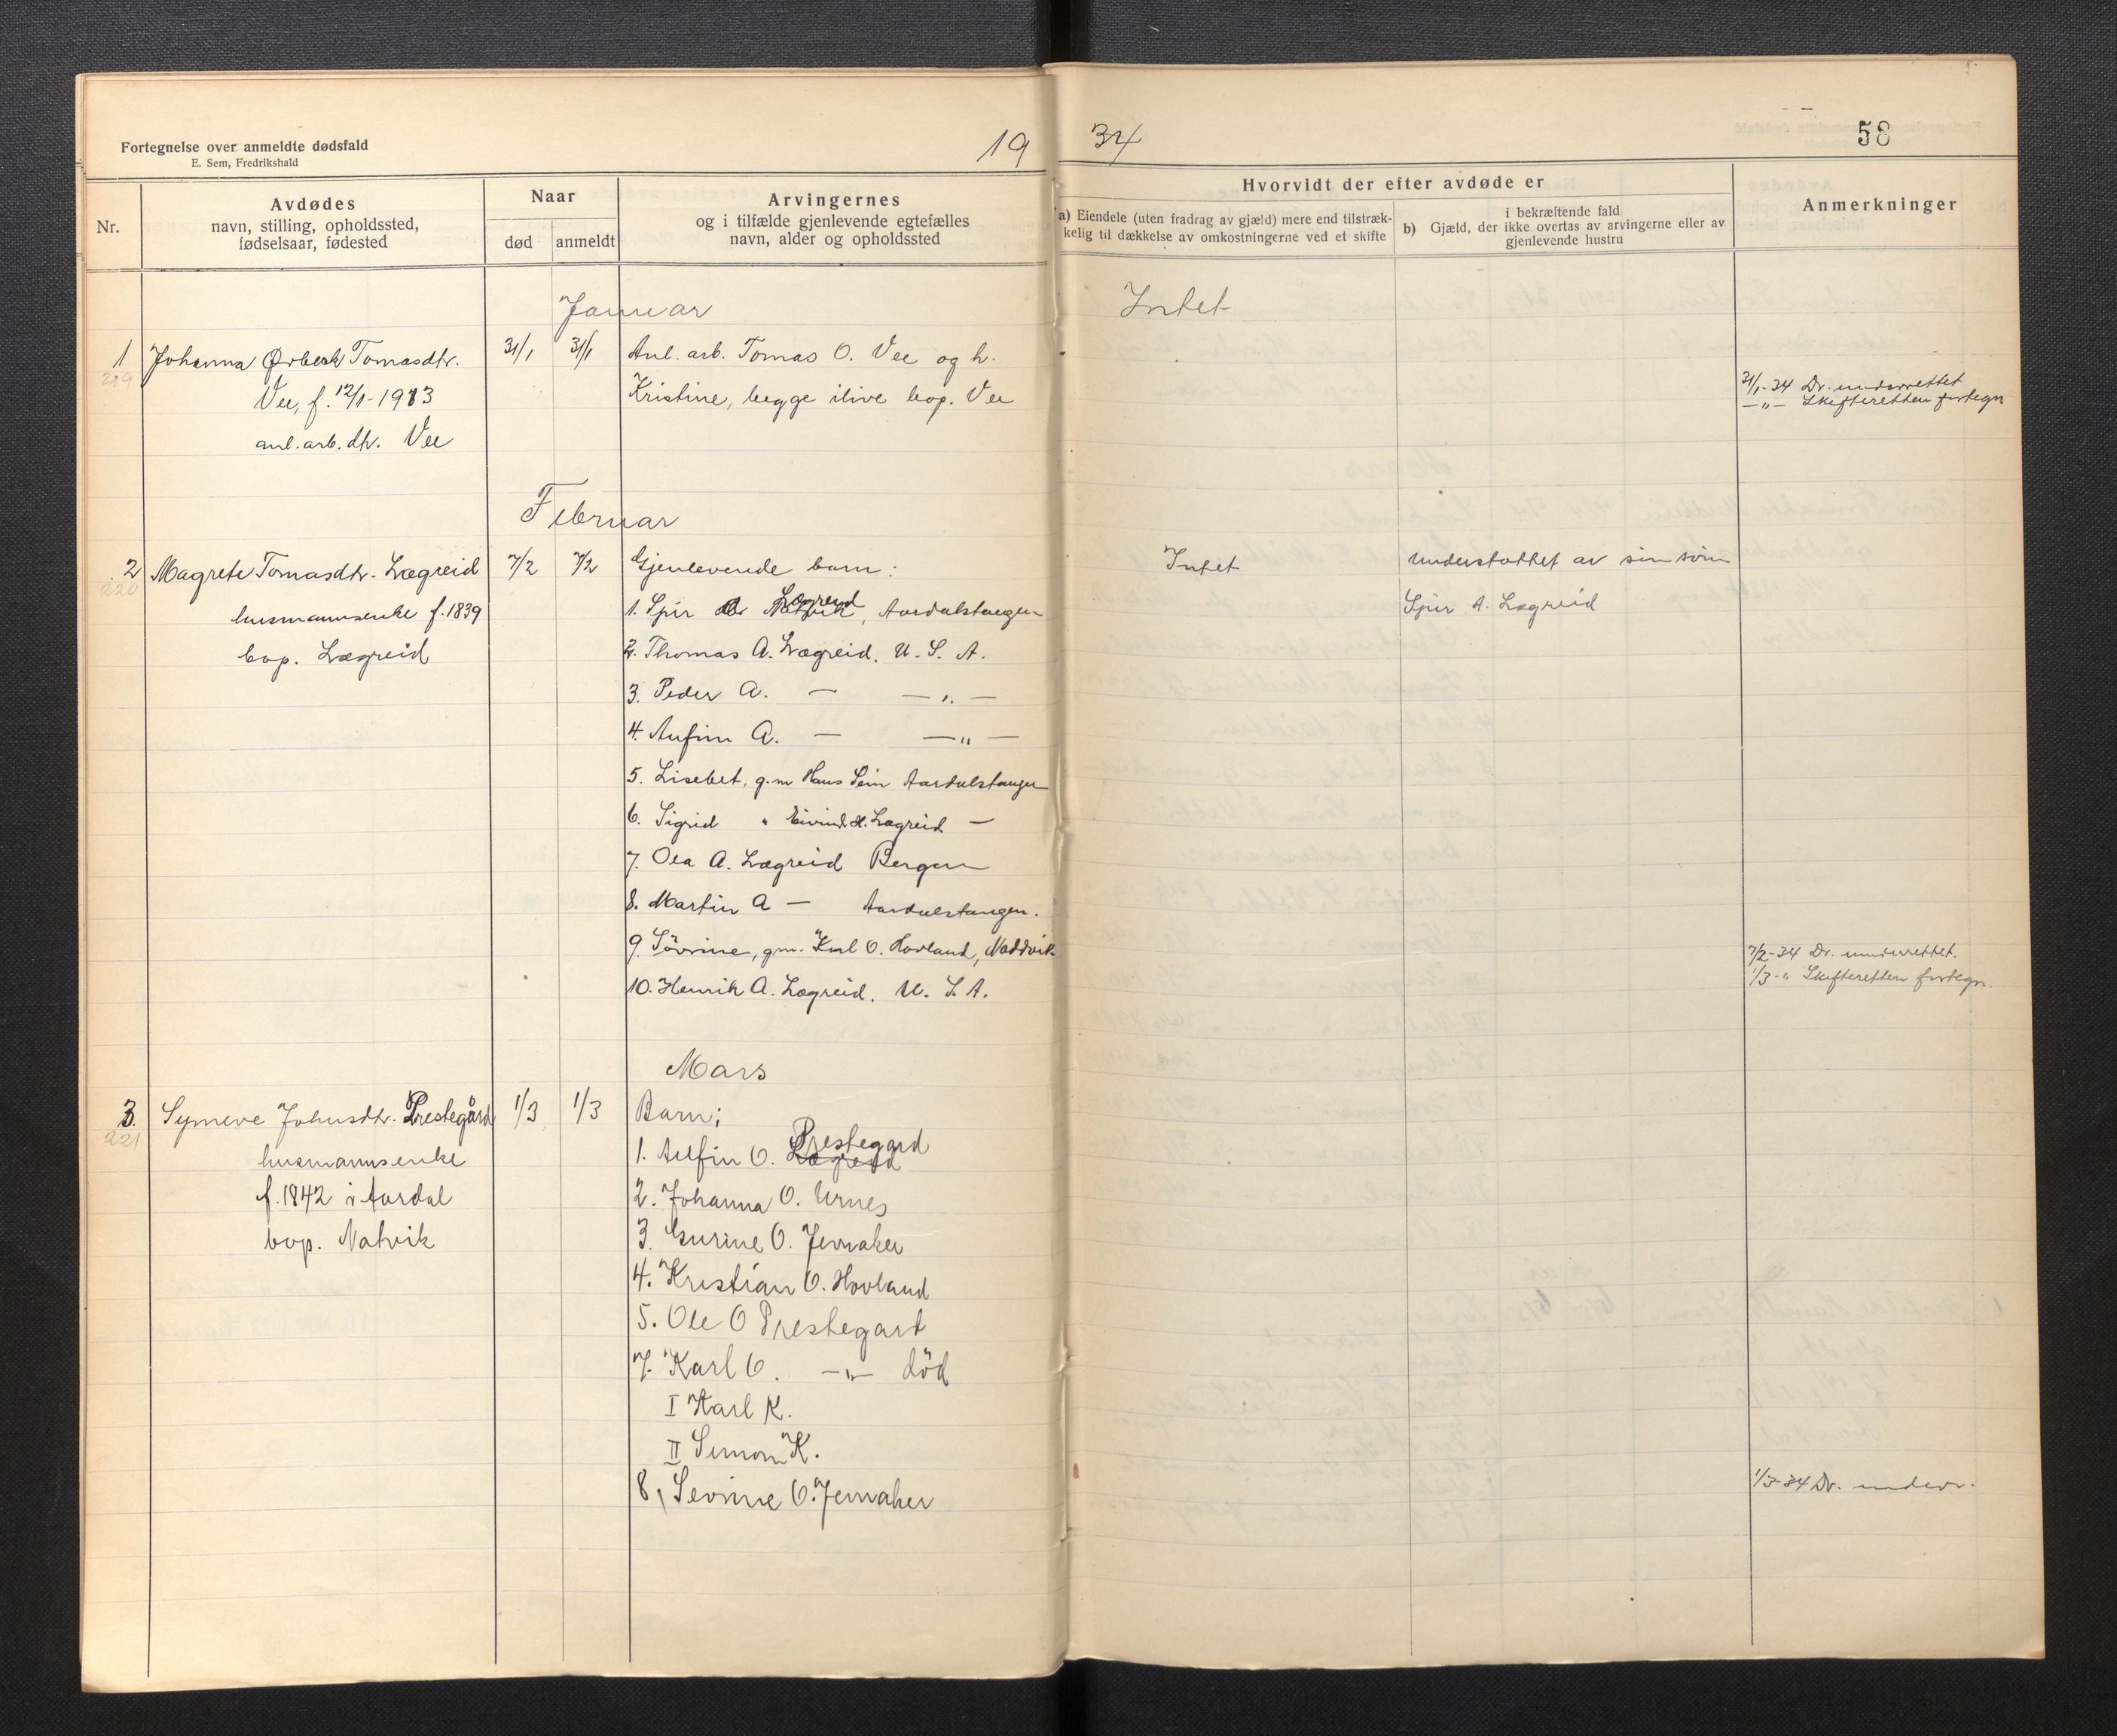 Fortegnelse over anmeldte dødsfald
E. Sem, Fredrikshald
19
34
58
Nr.
Avdødes
navn, stilling, opholdssted,
fødselsaar, fødested
Naar
død
anmeldt
Arvingernes
og i tilfælde gjenlevende egtefælles
navn, alder og opholdssted
Hvorvidt der efter avdøde er
a) Eiendele (uten fradrag av gjæld) mere end tilstræk-
kelig til dækkelse av omkostningerne ved et skifte
b) Gjæld, der ikke overtas av arvingerne eller av
i bekræftende fald
gjenlevende hustru
Anmerkninger
Januar
Intet
1 Johanna Ørbeck Tomasdtr. 31/1 31/1 Anl. arb. Tomas O. Vee og h.
219
Vee, f. 12/1-1913 Kristine, begge ilive bop. Vee
anl. arb. dtr. Vee
31/1-34 Dr. underrettet
-"- Skifteretten fortegn
Februar
2 Magrete Tomasdtr. Lægreid 7/2 7/2 Gjenlevende barn: Intet understøttet av sin sønn
220
husmannsenke f. 1839 1. Spir Lægreid, Aardalstangen Spir A. Lægreid
bop. Lægreid 2. Thomas A. Lægreid. U. S. A.
3. Peder A. — —"—
4. Anfinn A. — —"—
5. Lisebet, g.m Hans Sein Aardalstangen
6. Sigrid " Eivind H. Lægreid —
7. Ola A. Lægreid Bergen
8. Martin A — Aardalstangen.
9. Sövrine, gm. Karl O. Hovland, Naddvik
7/2-34 Dr. underrettet.
10. Henrik A. Lægreid. U. S. A.
1/3-" Skifteretten fortegn.
Mars
3. Synneve Johnsdtr. Prestegård 1/3 1/3 Barn;
221
husmannsenke 1. Anfin O. Lægreid Prestegard
f. 1842 i Aardal 2. Johanna O. Urnes
bop. Natvik 3. Gurine O. Jevnaker
4. Kristian O. Hovland
5. Ole O Prestegard
7. Karl O. —"— död
I Karl K.
II Simon K.
8, Sevrine O. Jevnaker
1/3-34 Dr. underr.